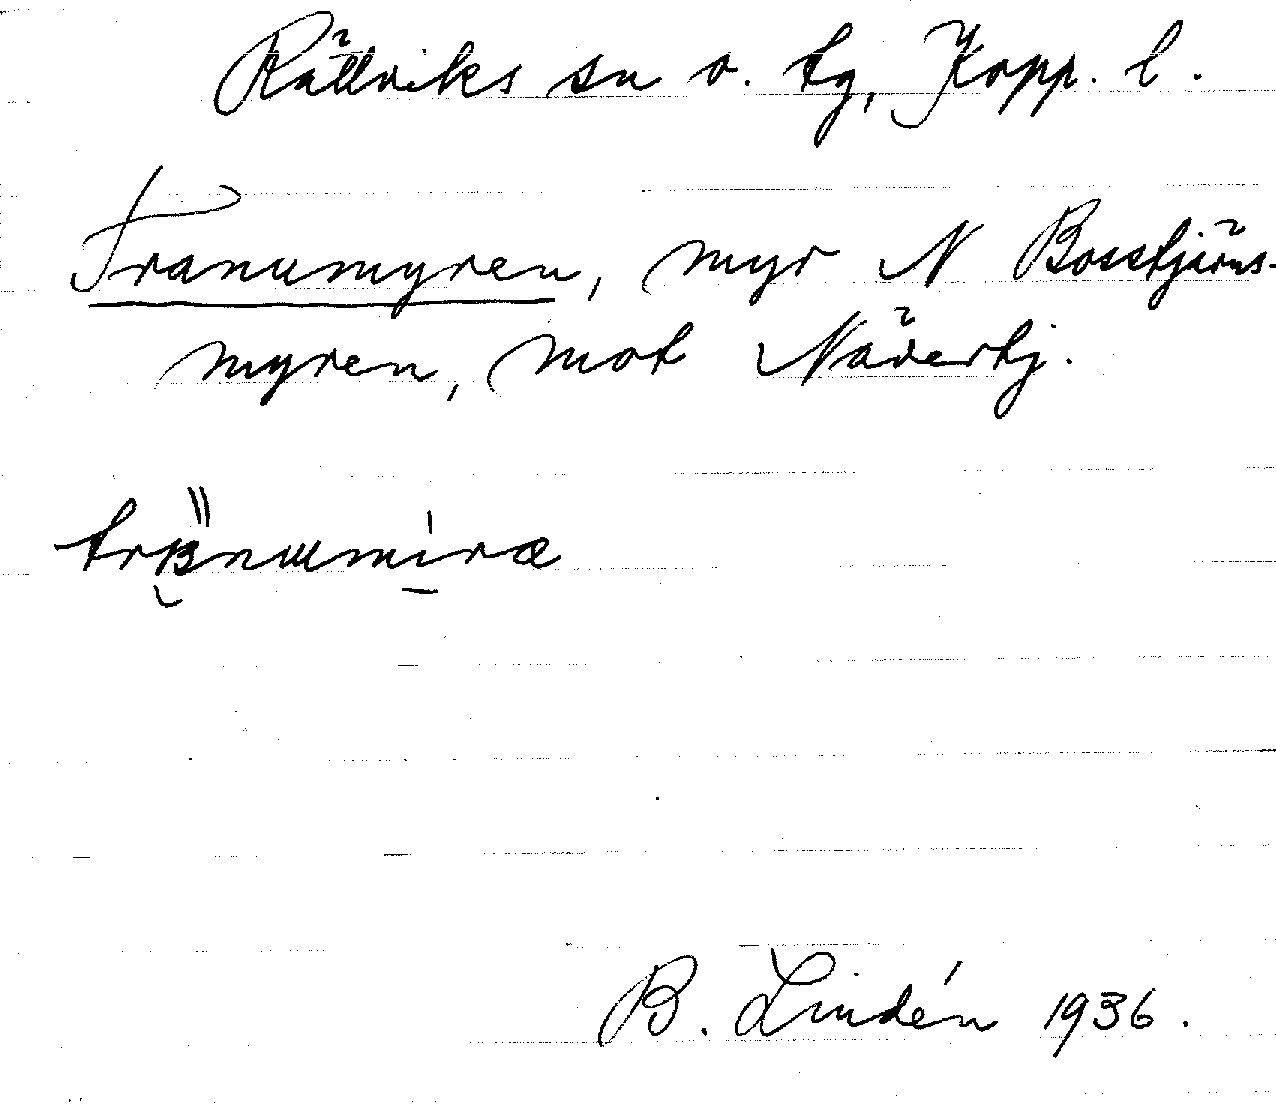 Rättviks sn o. tg, Kopp. l.
Tranumyren, myr N Bosstjärns-
myren, mot Nävertj.
B. Lindén 1936.